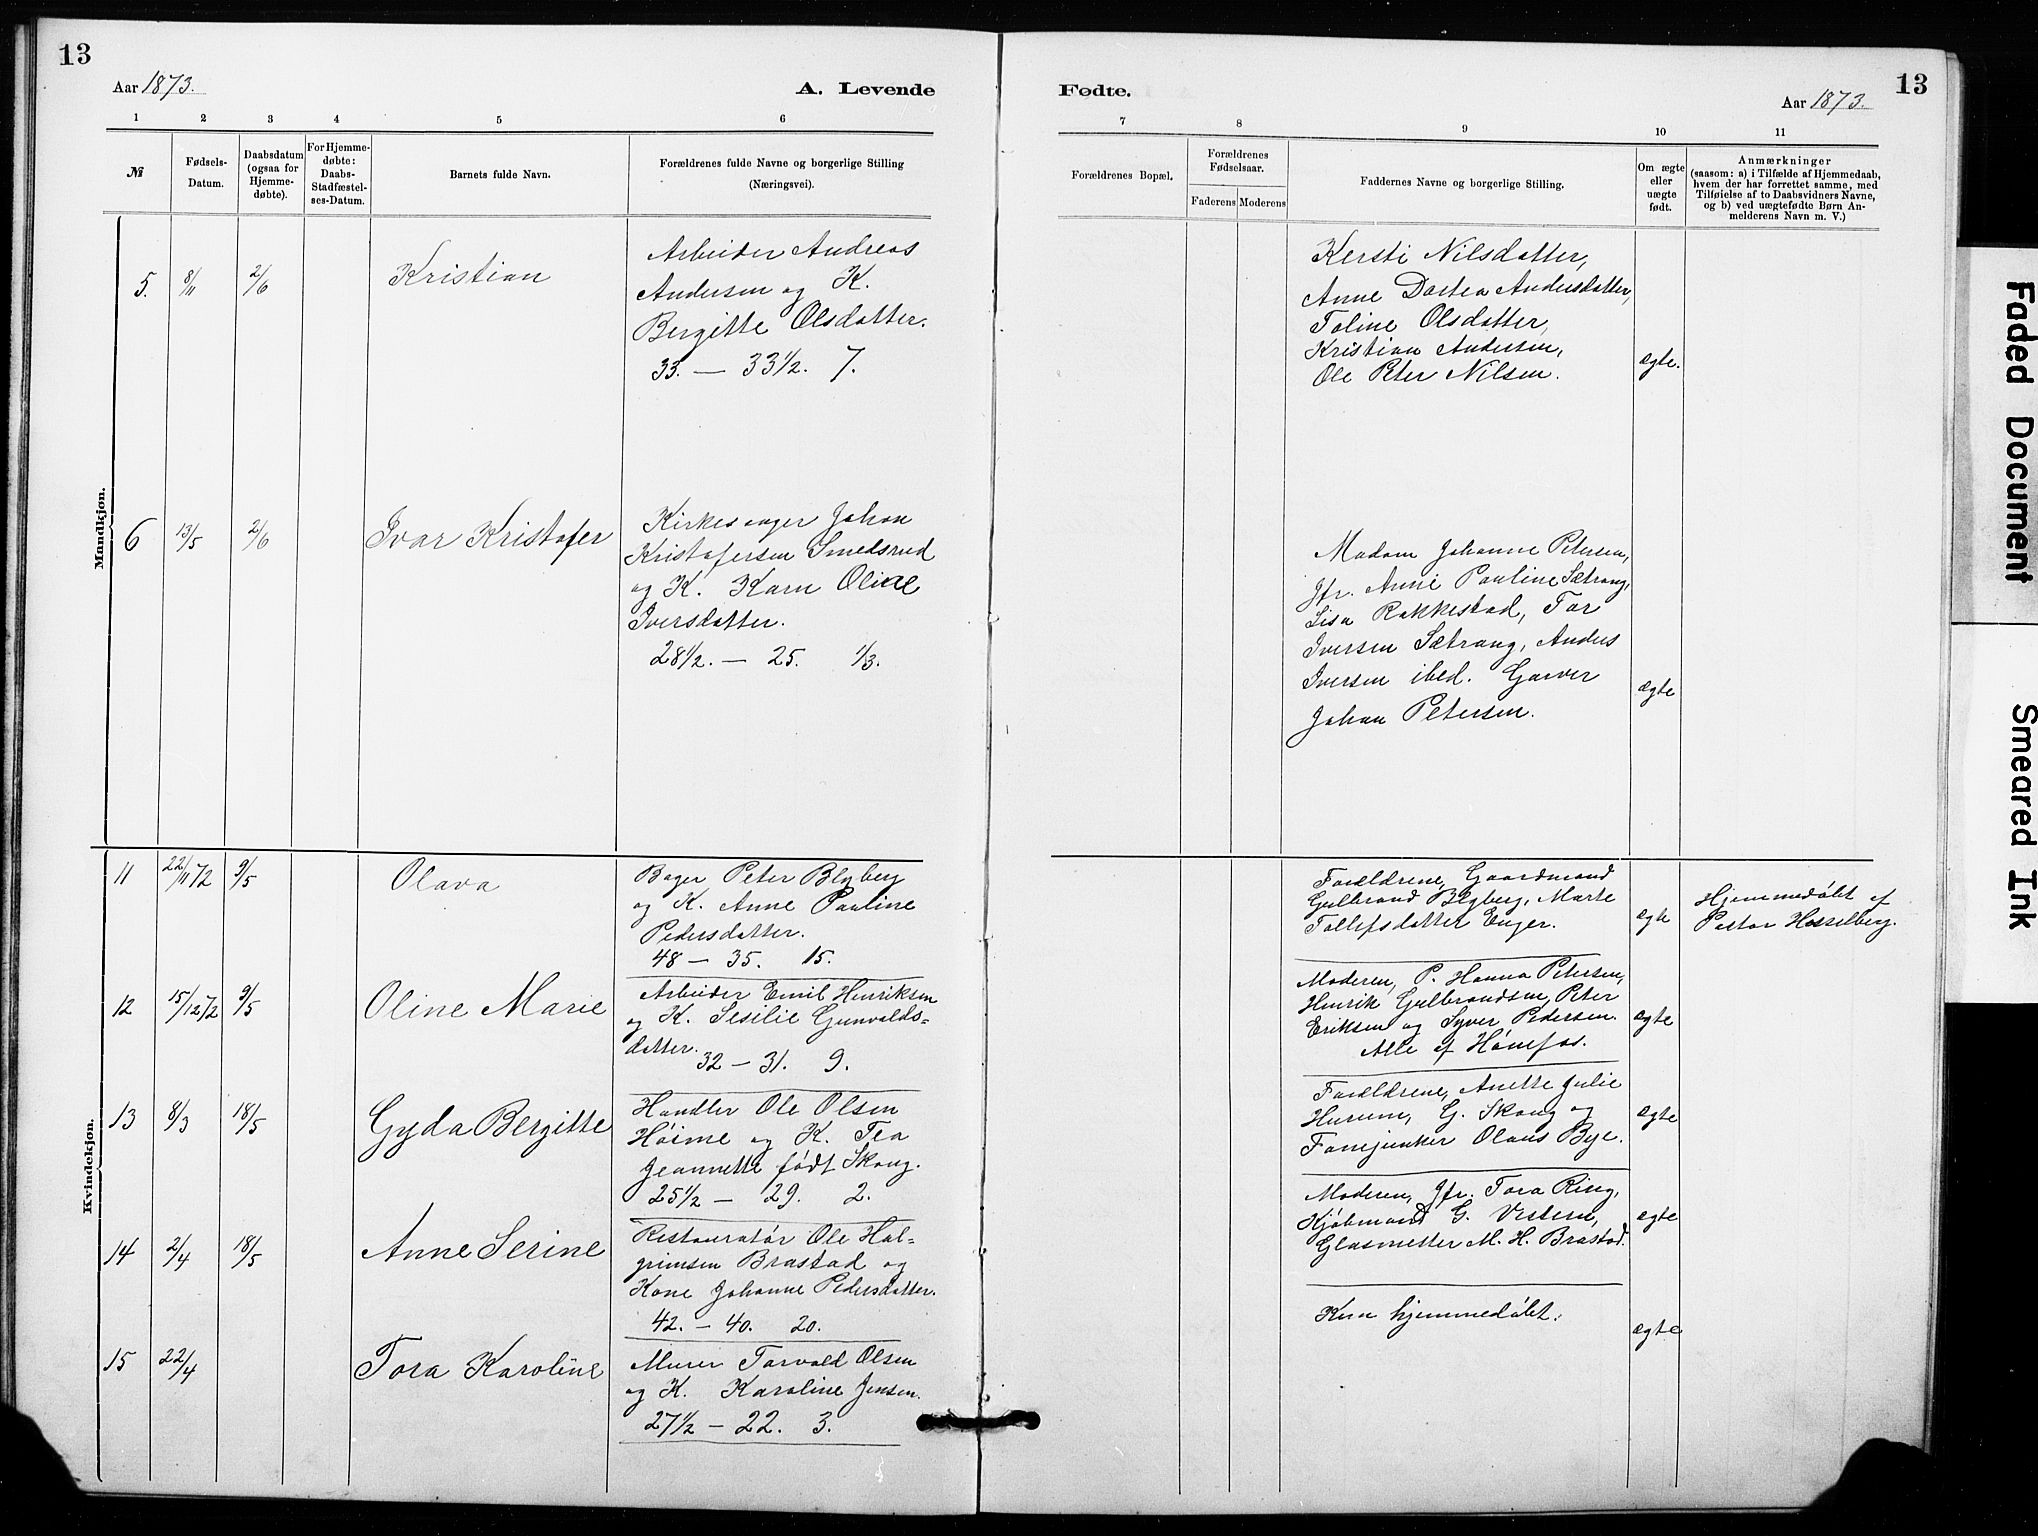 13
Aar 1873.
A. Levende
1 2 3 4 5 6
№
Fødsels-
Datum.
Daabsdatum
(ogsaa for
Hjemme-
døbte).
For Hjemme-
døbte:
Daabs-
Stadfæstel-
ses-Datum.
Barnets fulde Navn.
Forældrenes fulde Navne og borgerlige Stilling
(Næringsvei).
Mandkjøn.
5. 8/11 2/6 Kristian
Arbeider Andreas
Andersen og K.
Bergitte Olsdatter.
33. — 33 1/2. 7.
6 13/5 2/6 Ivar Kristofer
Kirkesanger Johan
Kristofersen Smedsrud
og K. Karn Oline
Iversdatter.
28 1/2. — 25. 1/3.
Kvindekjøn.
11 22/11 72 9/5 Olava
Bager Peter Blyberg
og K. Anne Pauline
Pedersdatter.
48 — 35. 15.
12 15/12 72 9/5 Oline Marie
Arbeider Emil Henriksen
og K. Sesilie Gunvalds-
datter. 32 — 31. 9.
13 8/3 18/5 Gyda Bergitte
Handler Ole Olsen
Høime og K. Tea
Jeannette født Skoug.
25 1/2 — 29. 2.
14 2/4 18/5 Anne Serine
Restauratør Ole Hal-
grimsen Brastad og
Kone Johanne Pedersdatter.
42. — 40. 20.
15 22/4 Tora Karoline
Murer Torvald Olsen
og K. Karoline Jensen.
27 1/2 — 22. 3.
13
Fødte.
Aar 1873.
7 8 9 10 11
Forældrenes Bopæl.
Forældrenes
Fødselsaar.
Faderens Moderens
Faddernes Navne og borgerlige Stilling.
Om ægte
eller
uægte
født.
Anmærkninger
(saasom: a) i Tilfælde af Hjemmedaab,
hvem der har forrettet samme, med
Tilføielse af to Daabsvidners Navne,
og b) ved uægtefødte Børn An-
melderens Navn m. V.)
Kersti Nilsdatter,
Anne Dortea Andersdatter,
Toline Olsdatter,
Kristian Andersen,
Ole Peter Nilsen.
ægte.
Madam Johanne Petersen,
Jfr. Anne Pauline Sætrang,
Lisa Rakkestad, Tor
Iversen Sætrang, Anders
Iversen ibed. Garver
Johan Petersen.
ægte
Forældrene, Gaardmand
Gulbrand Blyberg, Marte
Tollefsdatter Enger.
ægte
Hjemmedøbt af
Pastor Hesselberg.
Moderen, P. Hanna Petersen,
Henrik Gulbrandsen, Peter
Eriksen og Syver Pedersen.
Alle af Hønefos.
ægte
Forældrene, Anette Julie
Hurum, G. Skoug og
Fanejunker Olaus Bye.
ægte
Moderen, Jfr. Tora Ring,
Kjøbmand G. Vestern,
Glasmetter M. H. Brastad.
ægte
Kun hjemmedøbt.
ægte
Faded Document
Smeared Ink